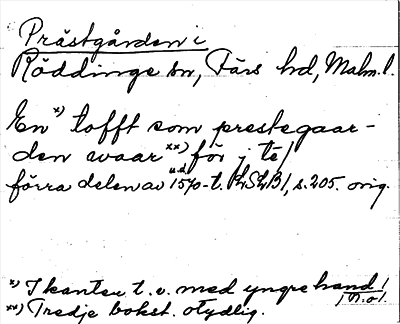 Prästgården i
Röddinge sn, Färs hd, Malm. l.
En *) tofft som prestegaar-
den waar **) för j te/
förra delen av 1570-t. LSLB1, s. 205. orig.
*) I kanten t. v. med yngre hand!
**) Tredje bokst. otydlig.